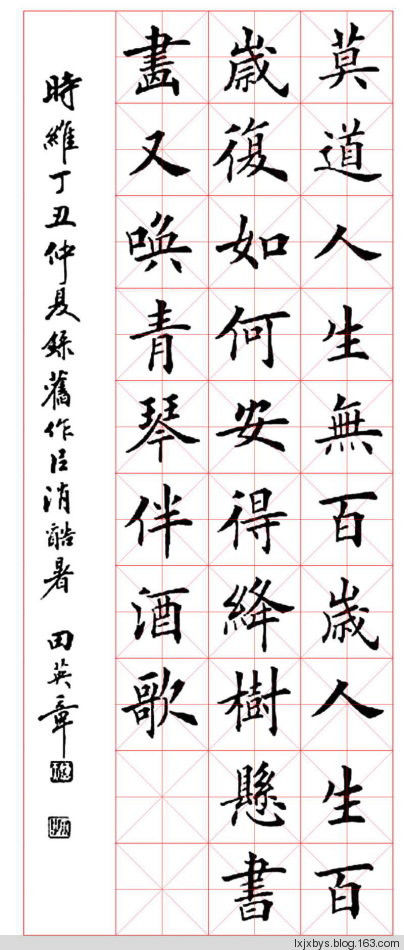 莫道人生無百歲人生百
歲復如何安得絳樹懸書
畫又喚青琴伴酒歌
時維丁丑仲夏錄舊作㠯消酷暑 田英章
lxjxbys.blog.163.com